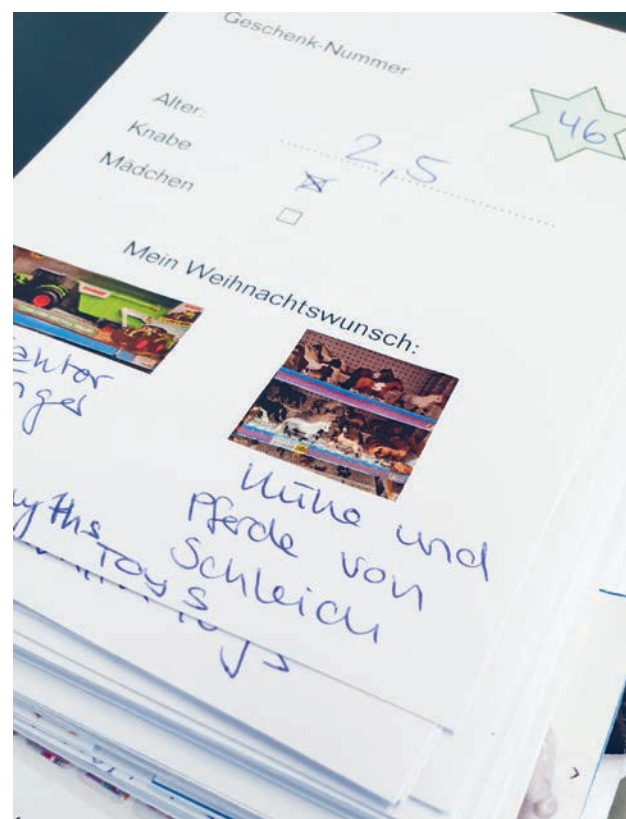 Geschenk-Nummer
46
Alter: 2,5
Knabe
Mädchen
Mein Weihnachtswunsch:
Kühe und
Pferde von
Schleich
Toys